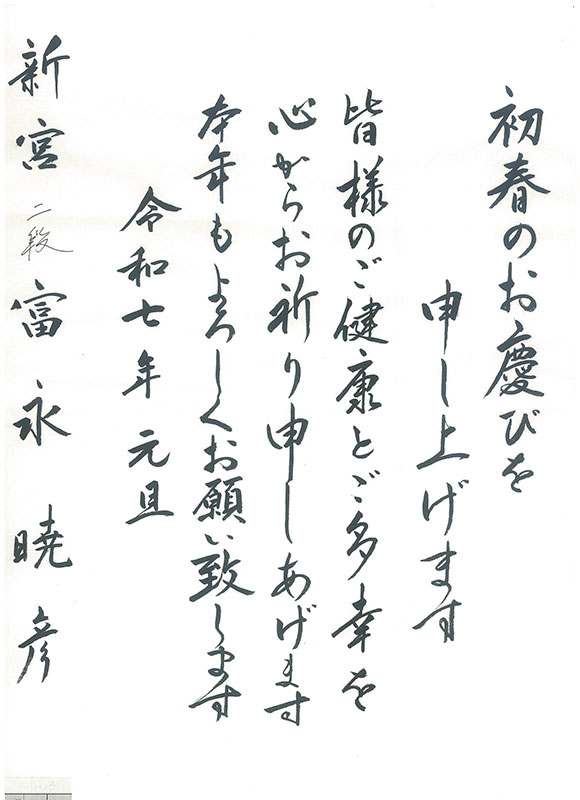 初春のお慶びを
申し上げます
皆様のご健康とご多幸を
心からお祈り申しあげます
本年もよろしくお願い致します
令和七年 元旦
新宮 二段 富永暁彦